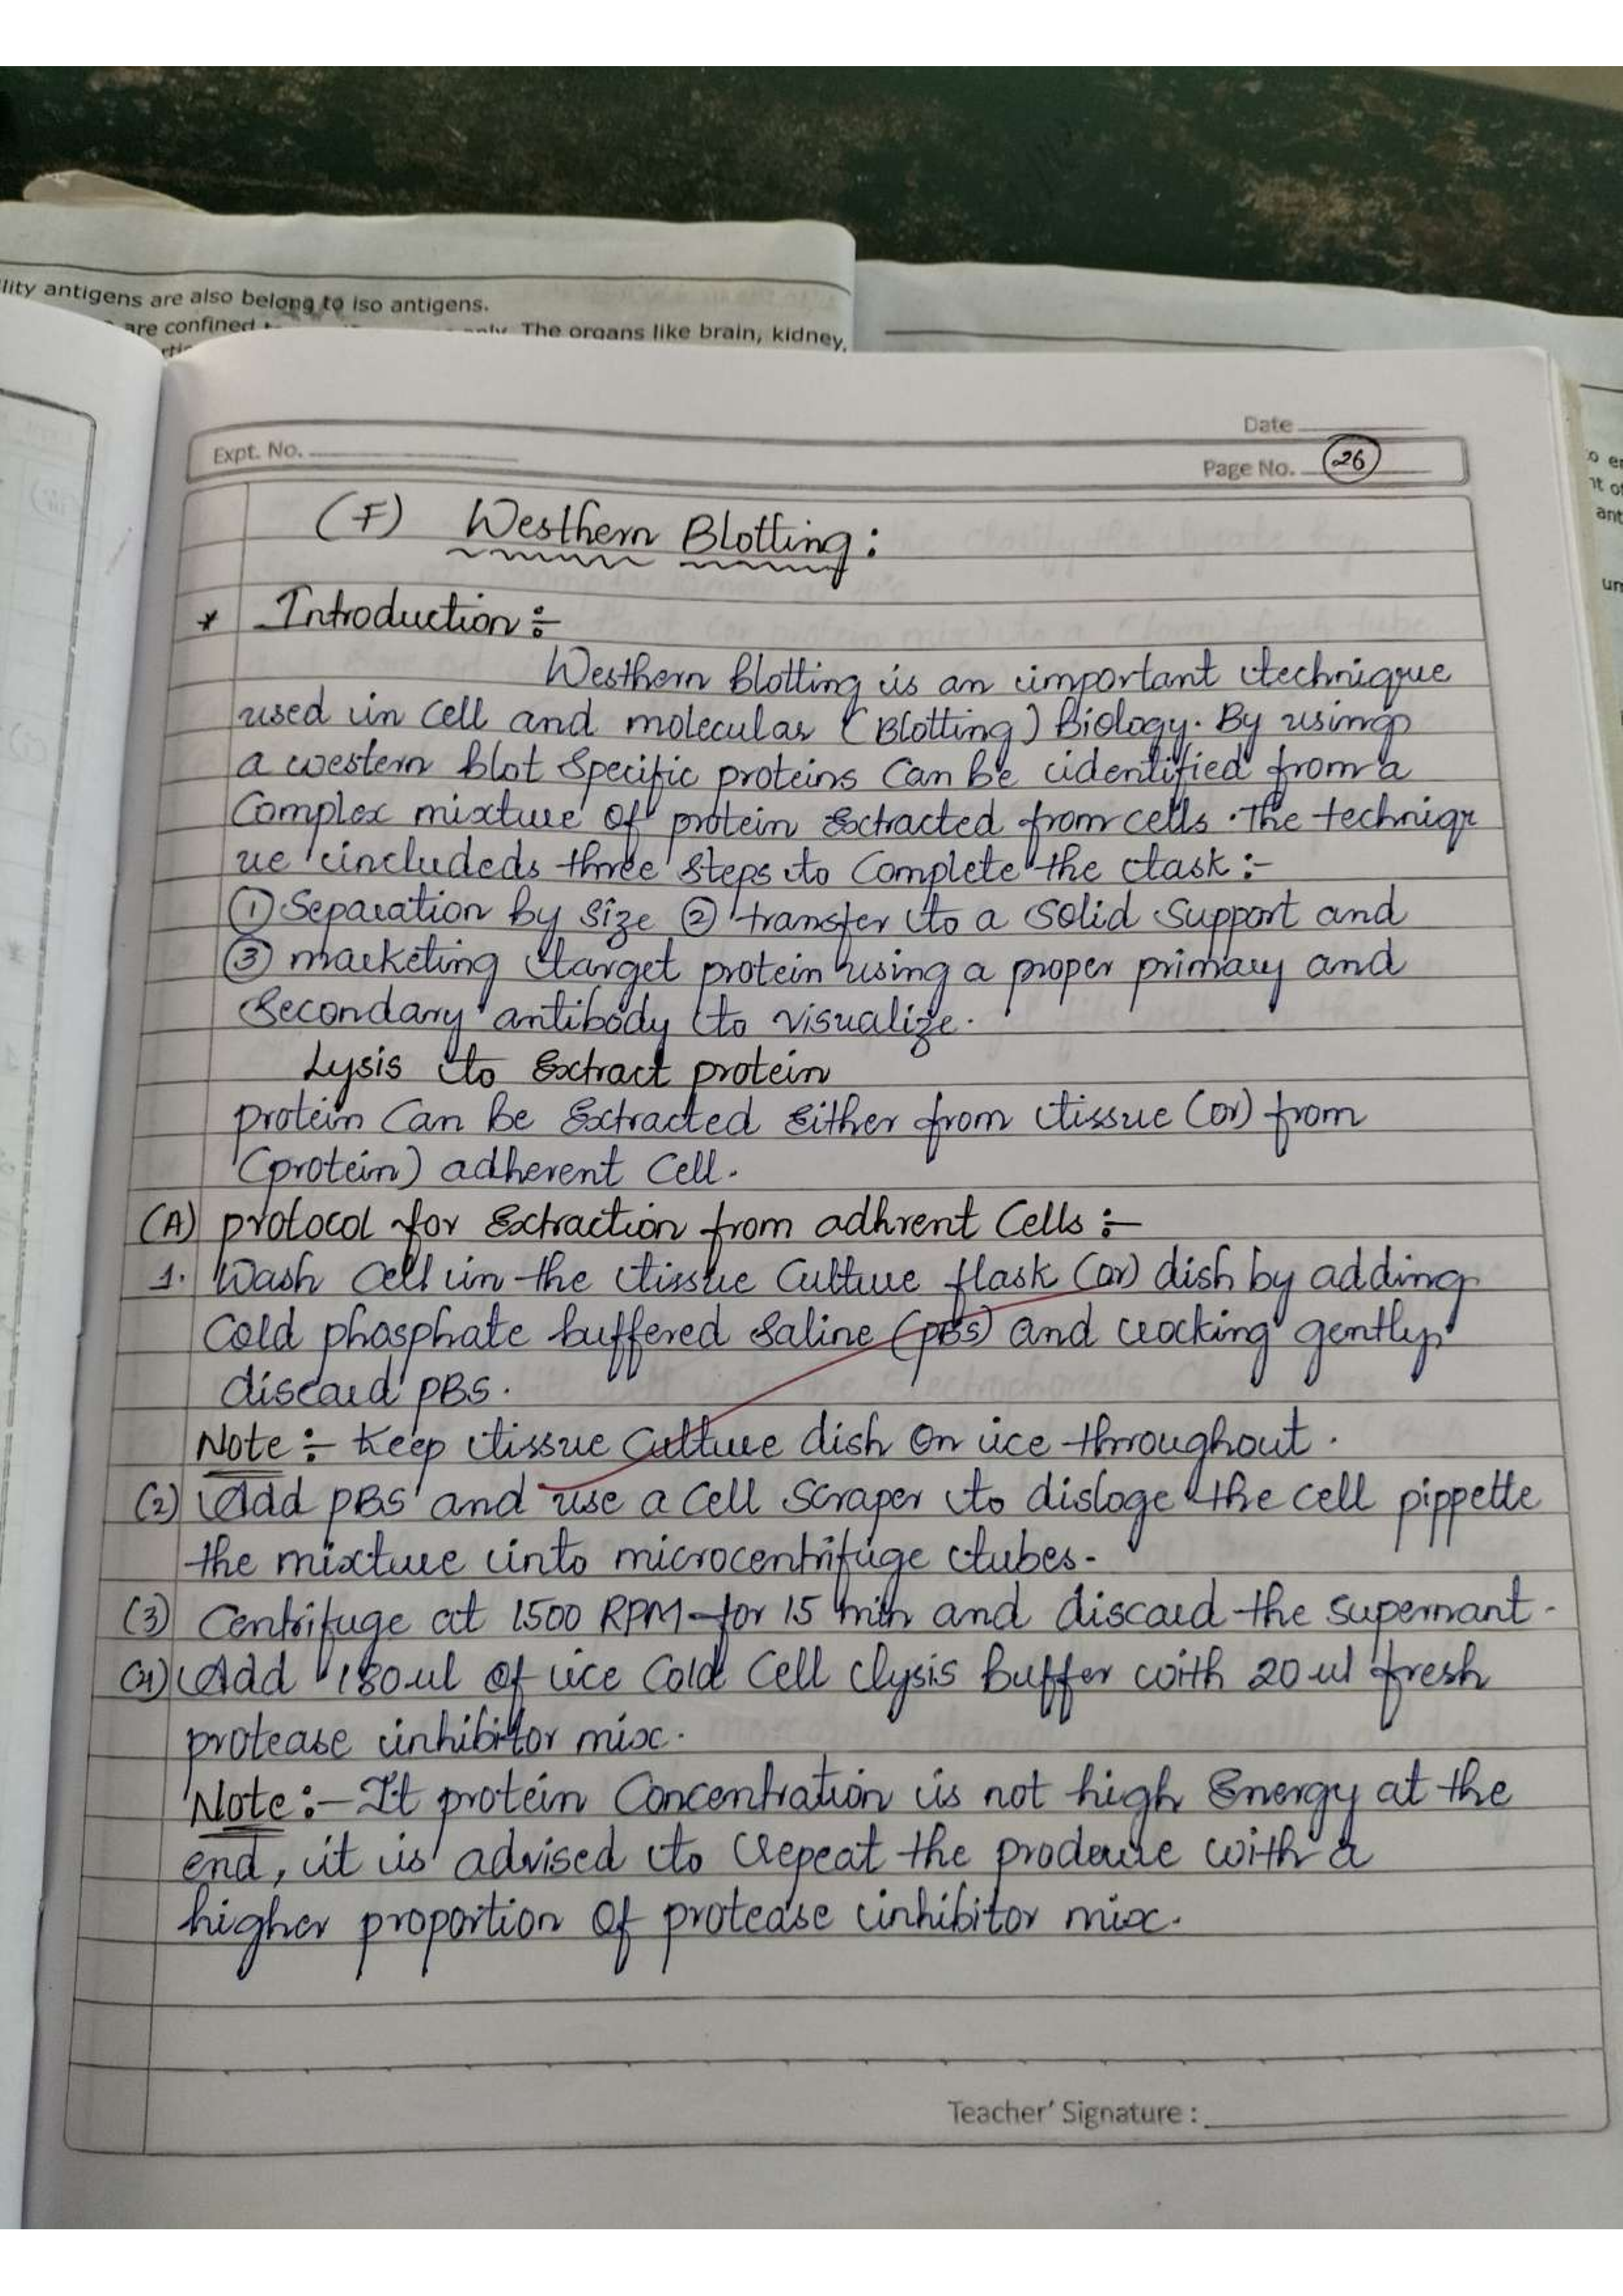 lity antigens are also belong to iso antigens.
are confined
only. The organs like brain, kidney,
Date
Expt. No.
Page No. 26
(F) Westhern Blotting:
* Introduction :-
Westhern blotting is an important technigque
used in cell and molecular (Blotting) Biology. By using
a western blot specific proteins can be identified from a
Complex mixture of protein extracted from cells. The techniqr
ue includeds three steps to complete the task :-
① Separation by size ② transfer to a solid support and
③ marketing target protein using a proper primary and
Secondary antibody to visualize.
Lysis to Extract protein
protein can be Extracted Either from tissue (or) from
(protein) adherent cell.
(A) protocol for Extraction from adhrent cells :-
1. Wash cell in the tissue culture flask (or) dish by adding
cold phosphate buffered saline (PBS) and rocking gently,
discard PBS.
Note :- Keep tissue culture dish on ice throughout.
(2) Add PBS and use a cell scraper to disloge the cell pippette
the mixture into microcentrifuge tubes.
(3) Centrifuge at 1500 RPM for 15 min and discard the supernant.
(4) Add 180 ul of ice cold cell lysis buffer with 20 ul fresh
protease inhibitor mix.
Note :- It protein concentration is not high Energy at the
end, it is advised to repeat the prodecure with a
higher proportion of protease inhibitor mix.
Teacher' Signature :